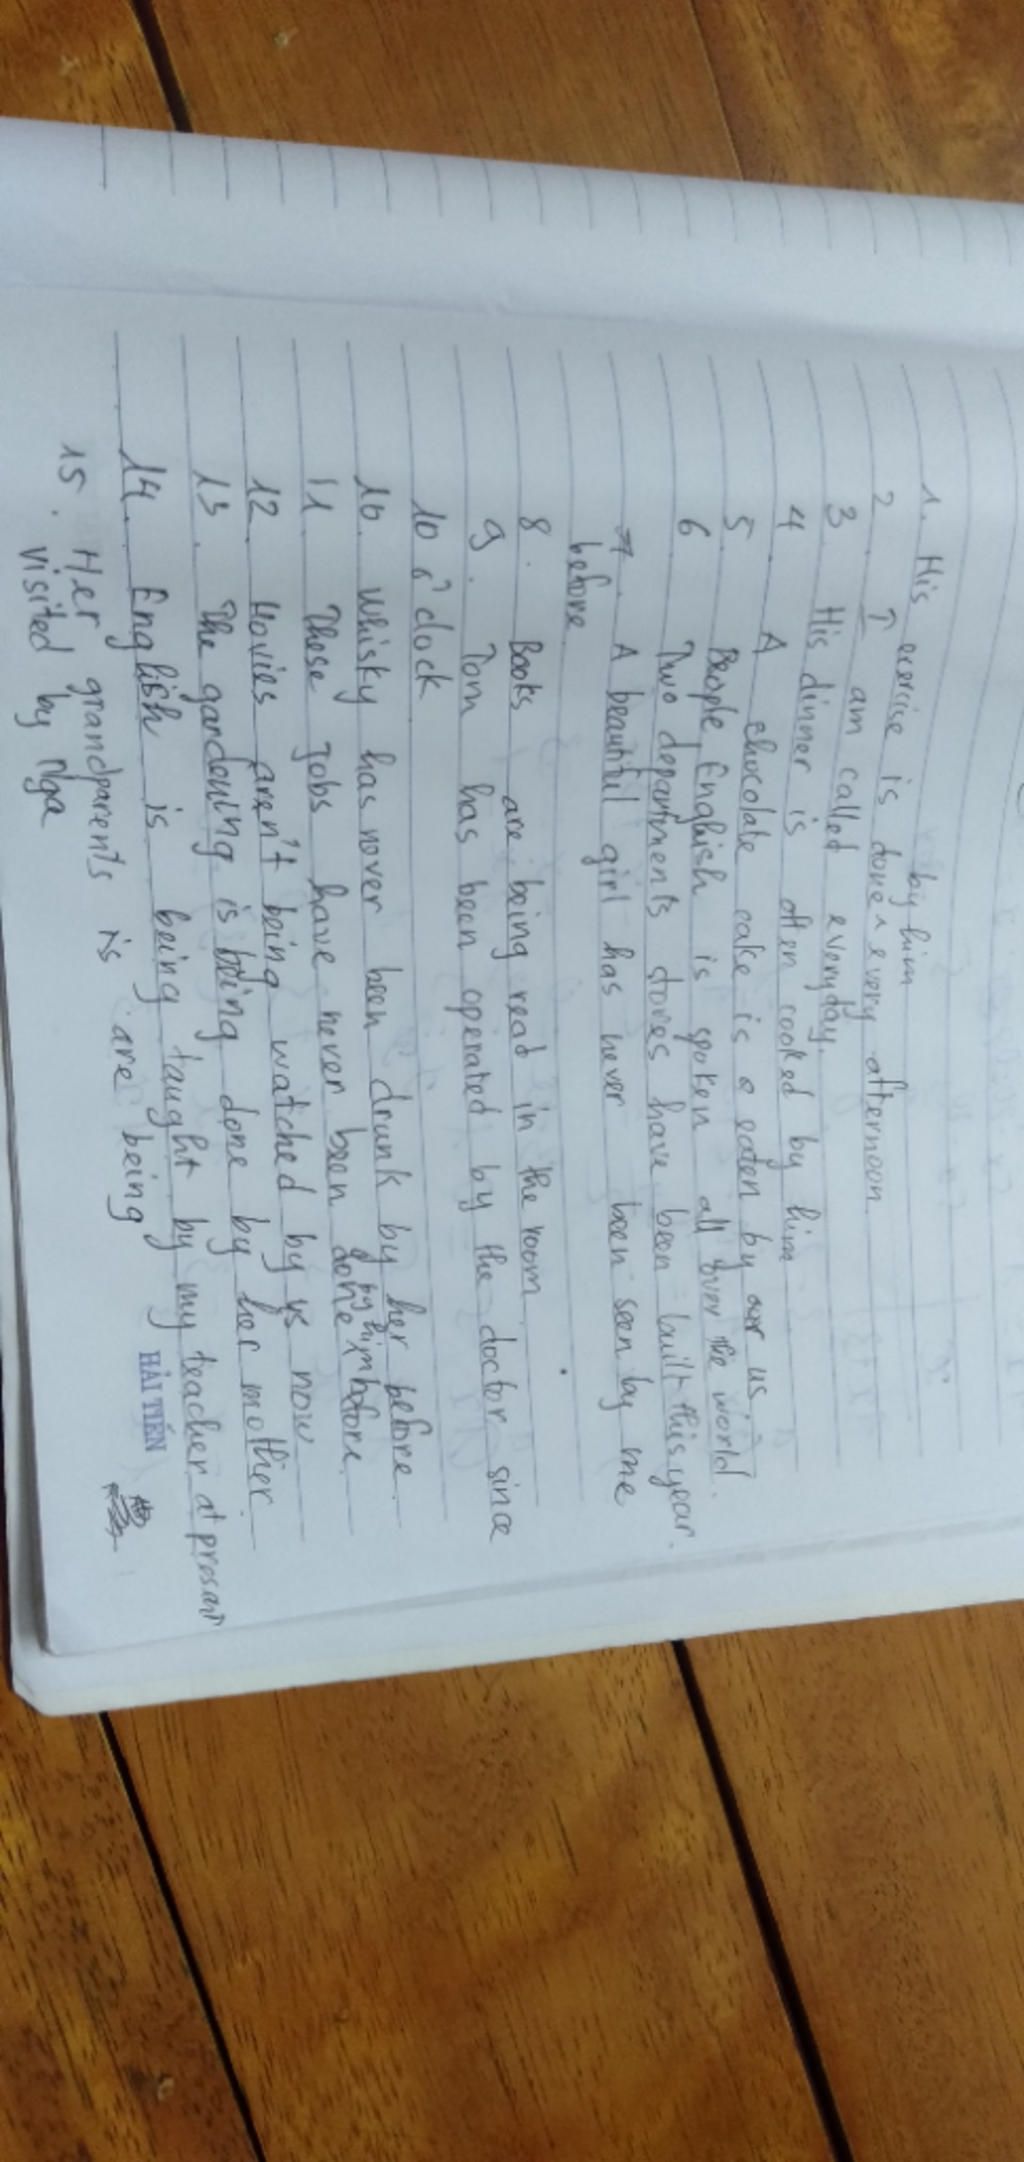 1. His exercise is done ^ by him every afternoon
2. I am called everyday.
3. His dinner is often cooked by him
4. A chocolate cake is a eaten by our us
5. People English is spoken all over the world.
6 Two departments stores have been built this year.
7. A beautiful girl has never been seen by me
before
8. Books are being read in the room
9. Tom has been operated by the doctor since
10 o'clock
10. whisky has never been drunk by her before.
11. These jobs have never been done ^ by him before.
12. Movies aren't being watched by us now
13. The gardening is being done by her mother.
14. English is being taught by my teacher at present
15. Her grandparents is are being
visited by Nga
HẢI TIẾN